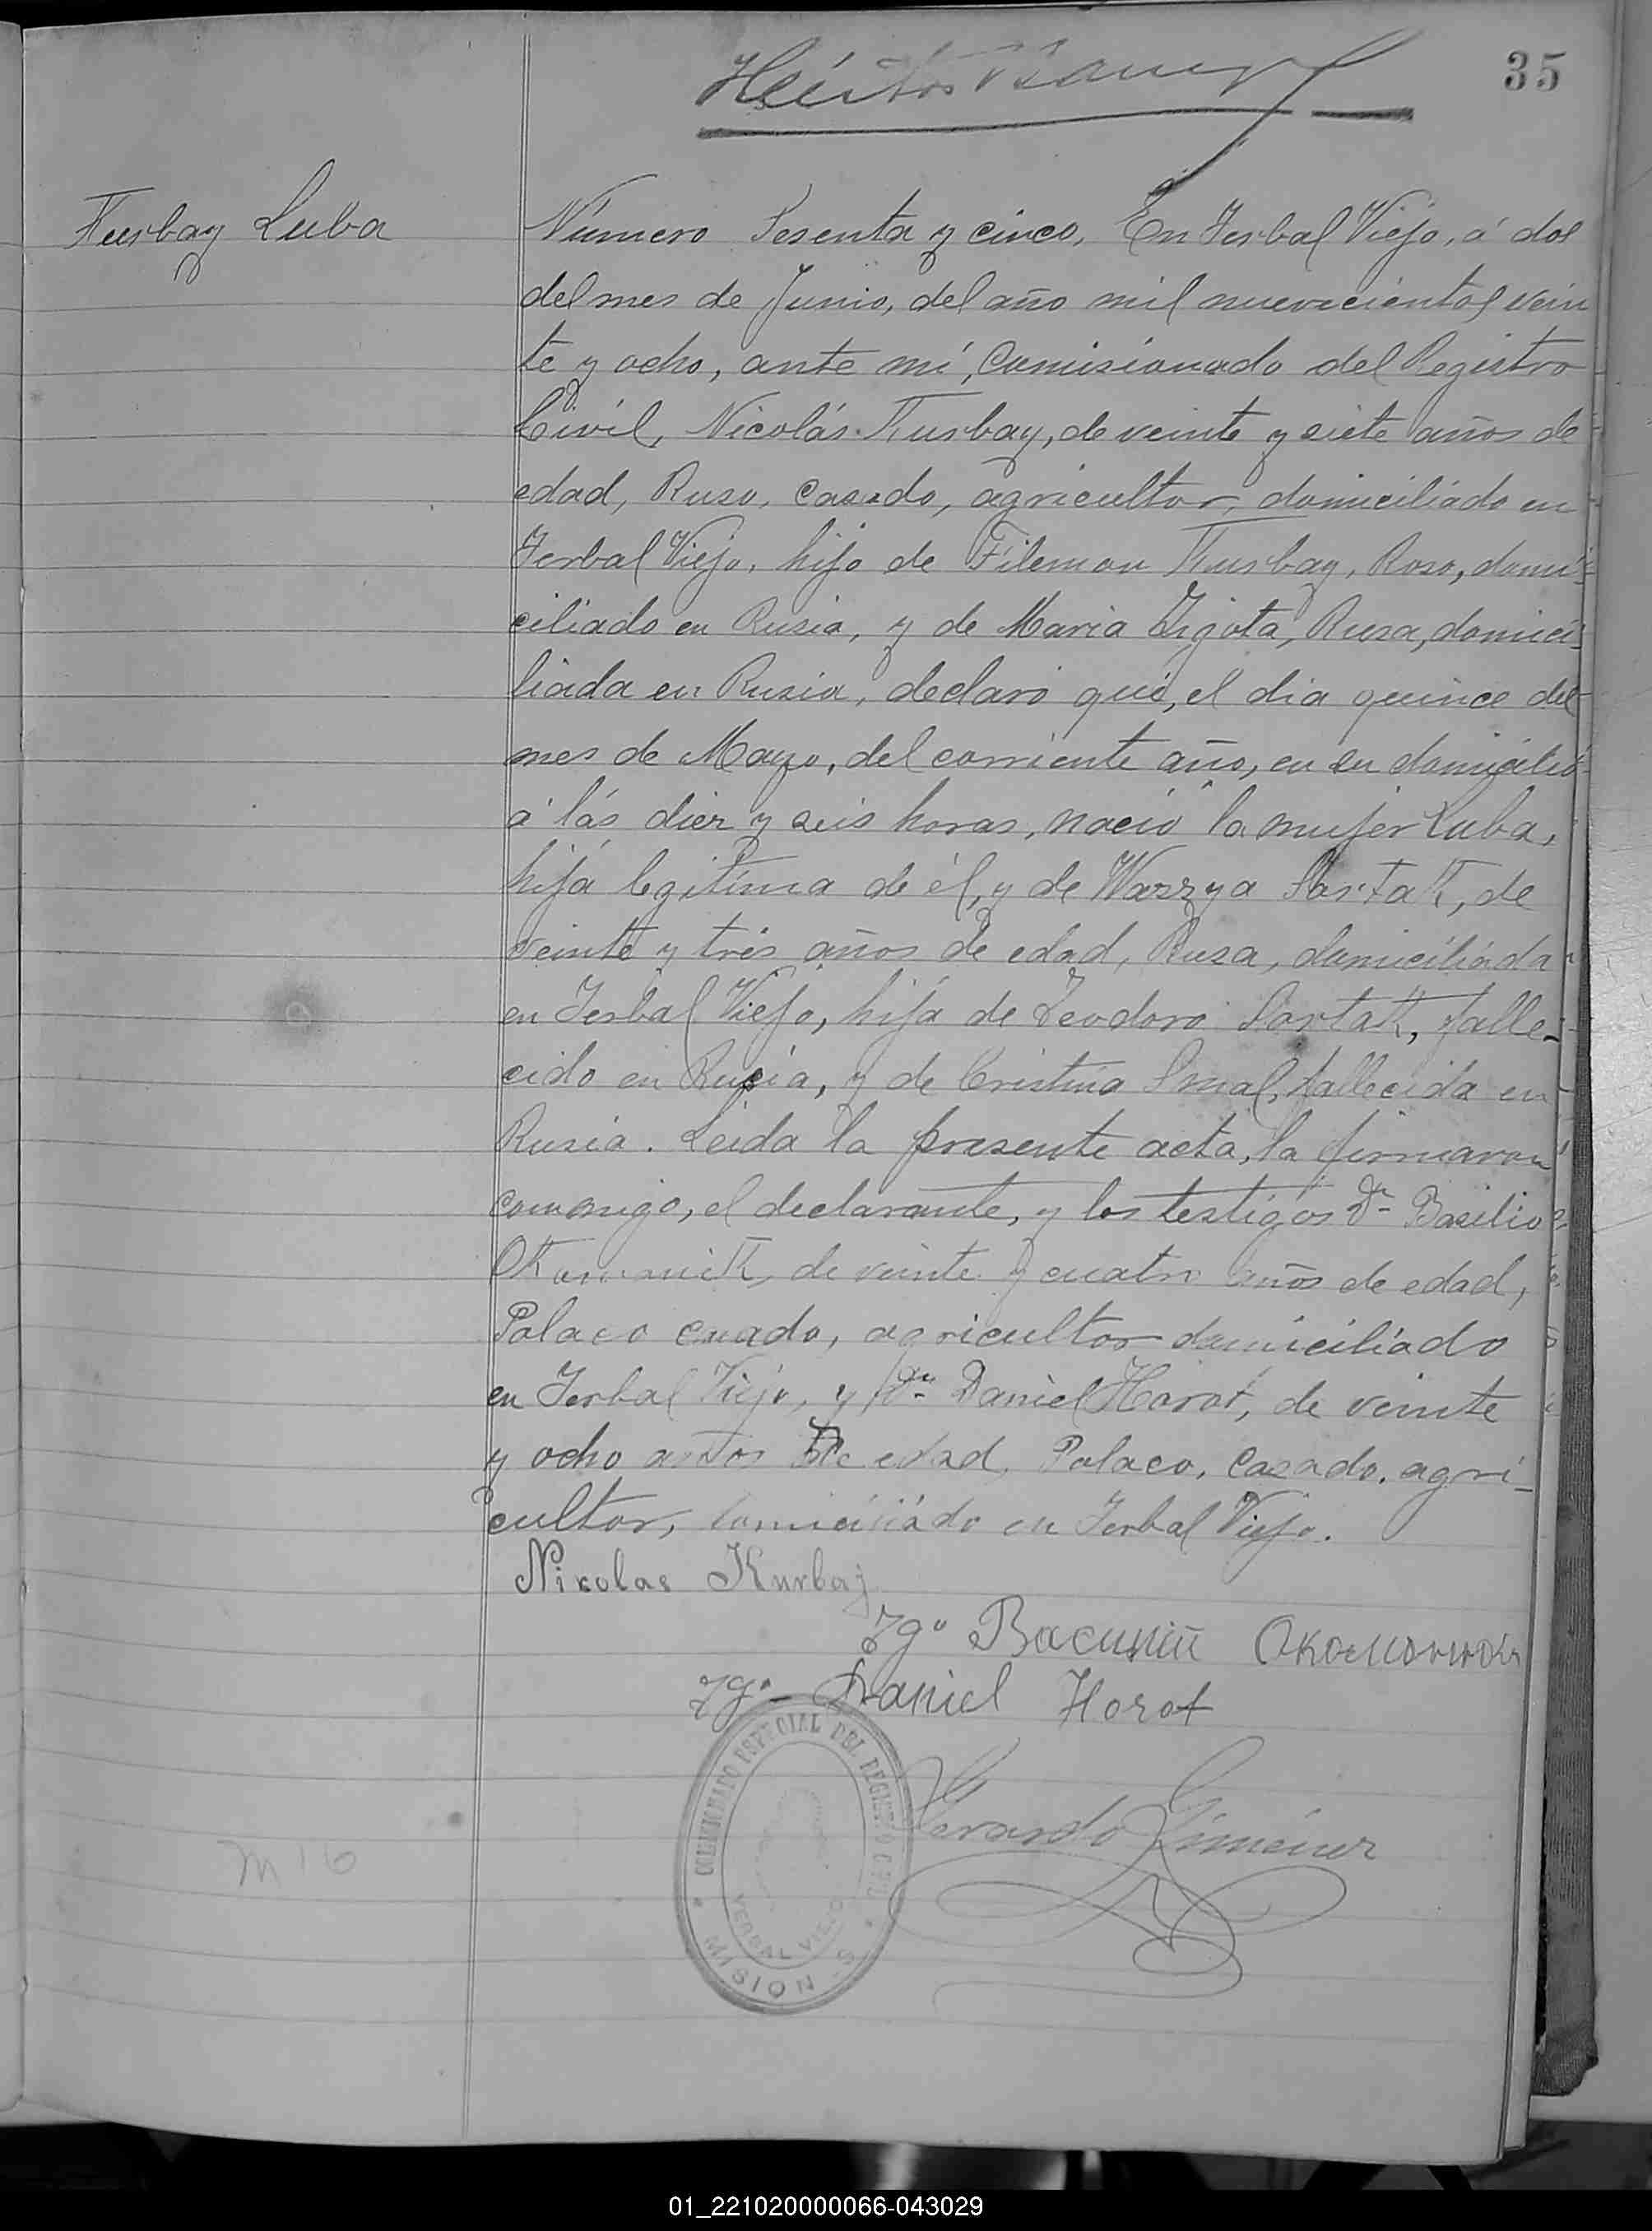 35
Kurbay Luba
Número Sesenta y cinco. En Yerbal Viejo, á dos
del mes de Junio, del año mil nuevecientos vein
te y ocho, ante mí, Comisionado del Registro
Civil, Nicolás Kurbay, de veinte y siete años de
edad, Ruso, casado, agricultor, domiciliado en
Yerbal Viejo, hijo de Filemon Kurbay, Ruso, domi-
ciliado en Rusia, y de Maria Zigota, Rusa, domici-
liada en Rusia, declaró que, el dia quince del
mes de Mayo, del corriente año, en su domicilio
á lás diez y seis horas, nació la mujer Luba,
hija legitíma de él, y de Warzya Sortak, de
veinte y trés años de edad, Rusa, domiciliada
en Yerbal Viejo, hija de Teodoro Sortak, falle-
cido en Rusia, y de Cristina Smal, fallecida en
Rusia. Leida la presente acta, la firmaron
conmigo, el declarante, y los testigos Dn Basilio
Okomaniuk, de veinte y cuatro años de edad,
Polaco casado, agricultor domiciliado
en Yerbal Viejo, y Dn Daniel Horot, de veinte
y ocho años de edad, Polaco, casado, agri-
cultor, domiciliado en Yerbal Viejo.
Nikolas Kurbaj
Tgo Василий
Tgo- Daniel Horot
Gerardo Giménez
COMISIONADO ESPECIAL DEL REGISTRO CIVIL
YERBAL VIEJO
MISIONES
M 16
01_221020000066-043029